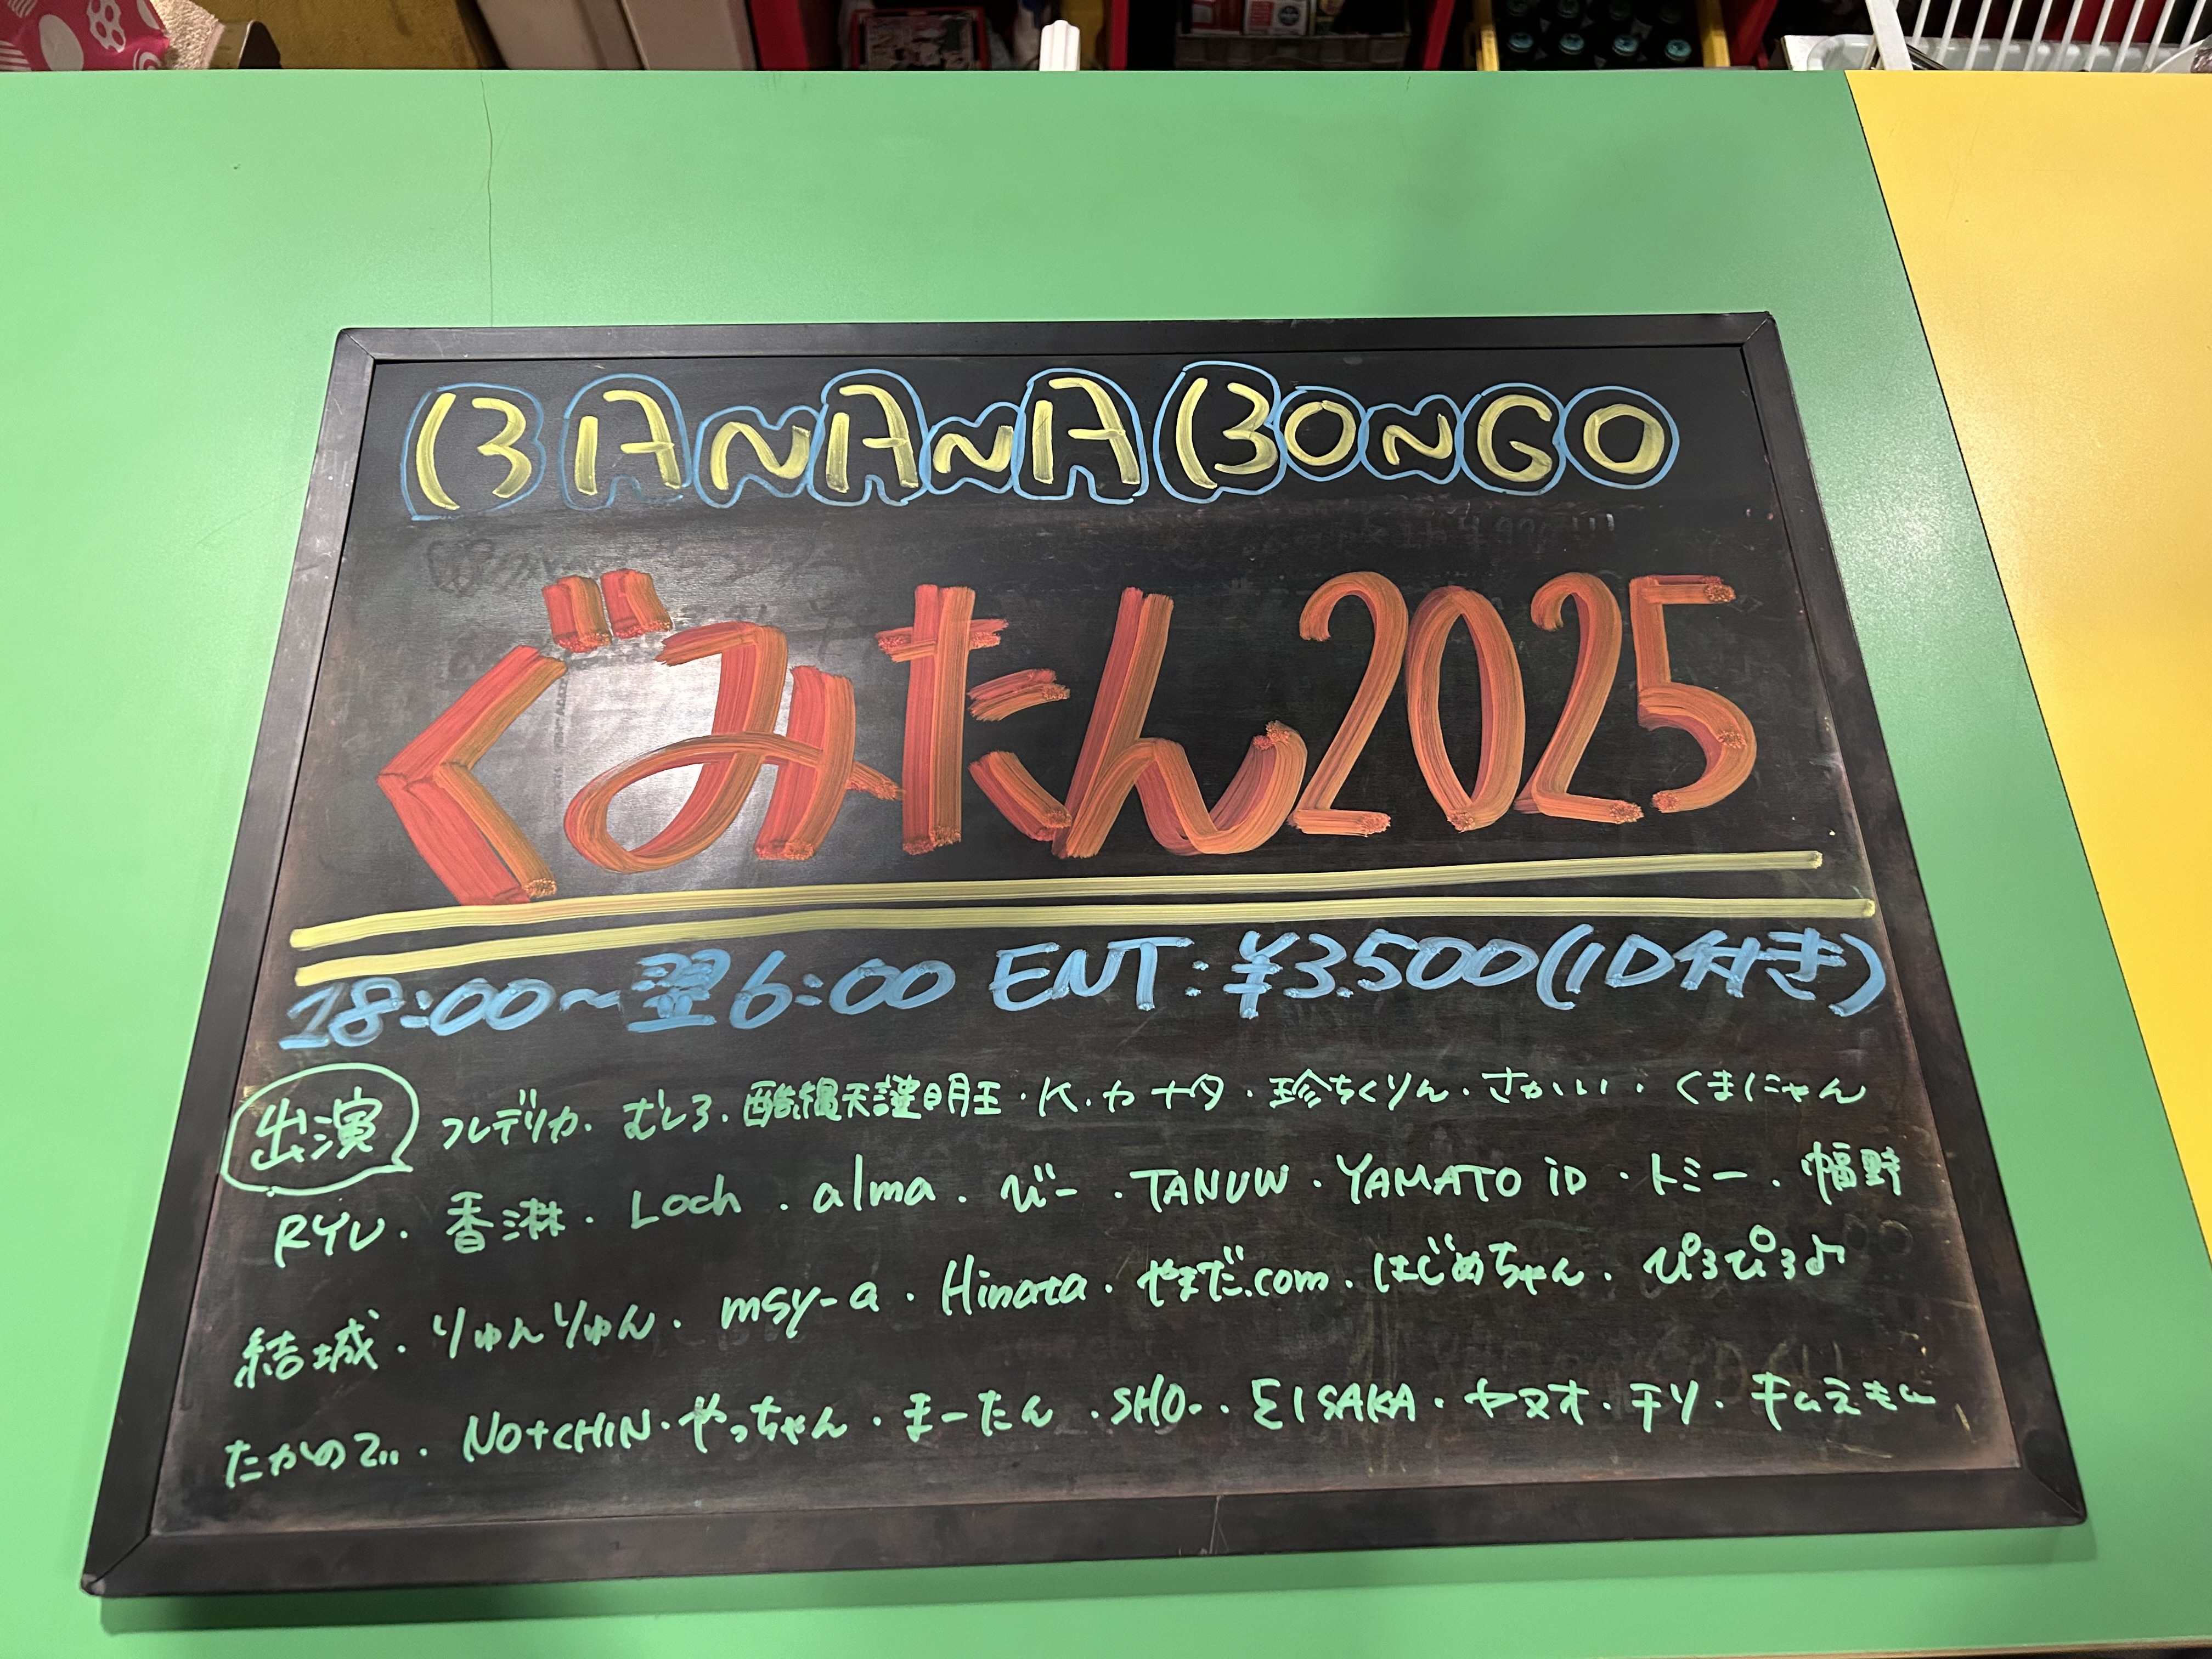 BANANA BONGO
ぐみたん2025
18:00〜翌6:00 ENT:¥3.500(1D付き)
出演 フレデリカ.むしろ.酩縄天護明王・K.カナタ・珍ちくりん・さかいい・くまにゃん
RYU・香淋・Loch・alma・びー・TANUW・YAMATO iD・トミー・幅野
結城・りゅんりゅん・msy-a・Hinata・やまだ.com・はじめちゃん・ぴろぴろ♪
たかので...・NOtCHIN・やっちゃん・まーたん・SHO-・EISAKA・ヤヌオ・チソ・キムえもん